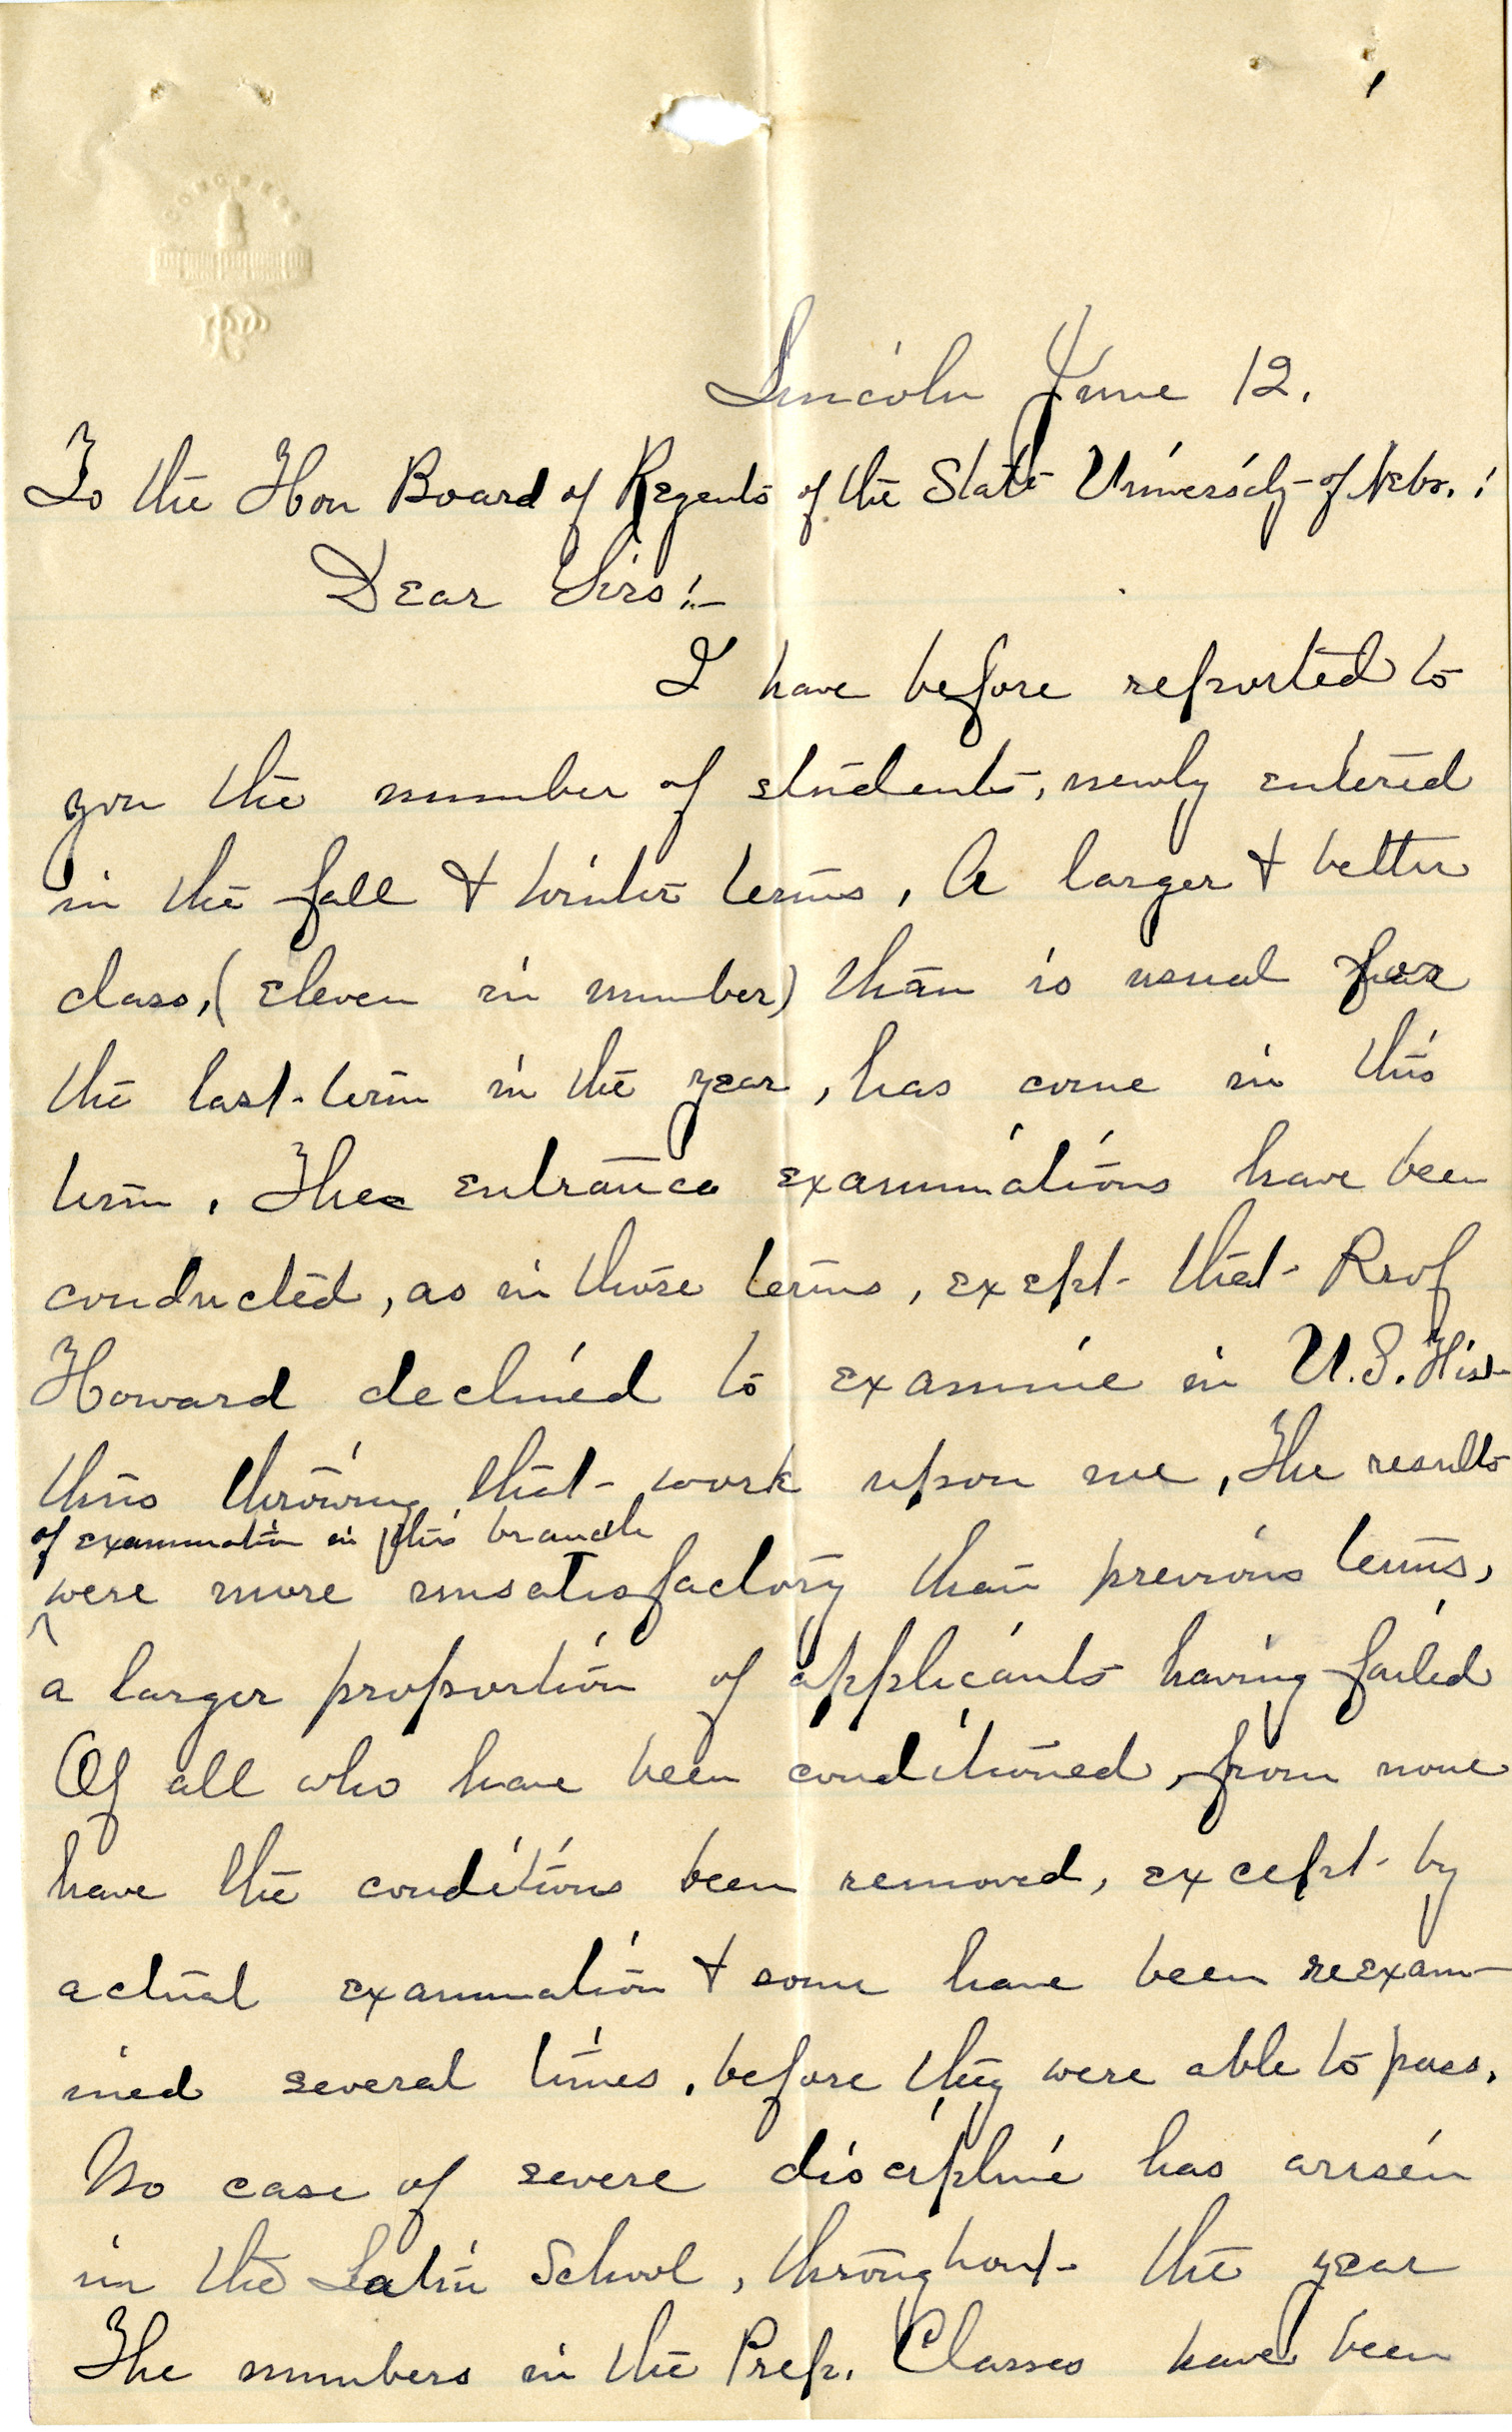 CONGRESS
Lincoln June 12.
To the Hon Board of Regents of the State University of Nebr.:
Dear Sirs:-
I have before reported to
you the number of students, newly entered
in the fall & winter terms. A larger & better
class, (eleven in number) than is usual for
the last term in the year, has come in this
term. The entrance examinations have been
conducted, as in those terms, except that Prof
Howard declined to examine in U.S. Hist
thus throwing that work upon me. The results
of examination in this branch
were more unsatisfactory than previous terms,
a larger proportion of applicants having failed
Of all who have been conditioned, from none
have the conditions been removed, except by
actual examination & some have been reexam-
ined several times, before they were able to pass.
No case of severe discipline has arisen
in the Latin School, throughout the year
The numbers in the Prep. Classes have been